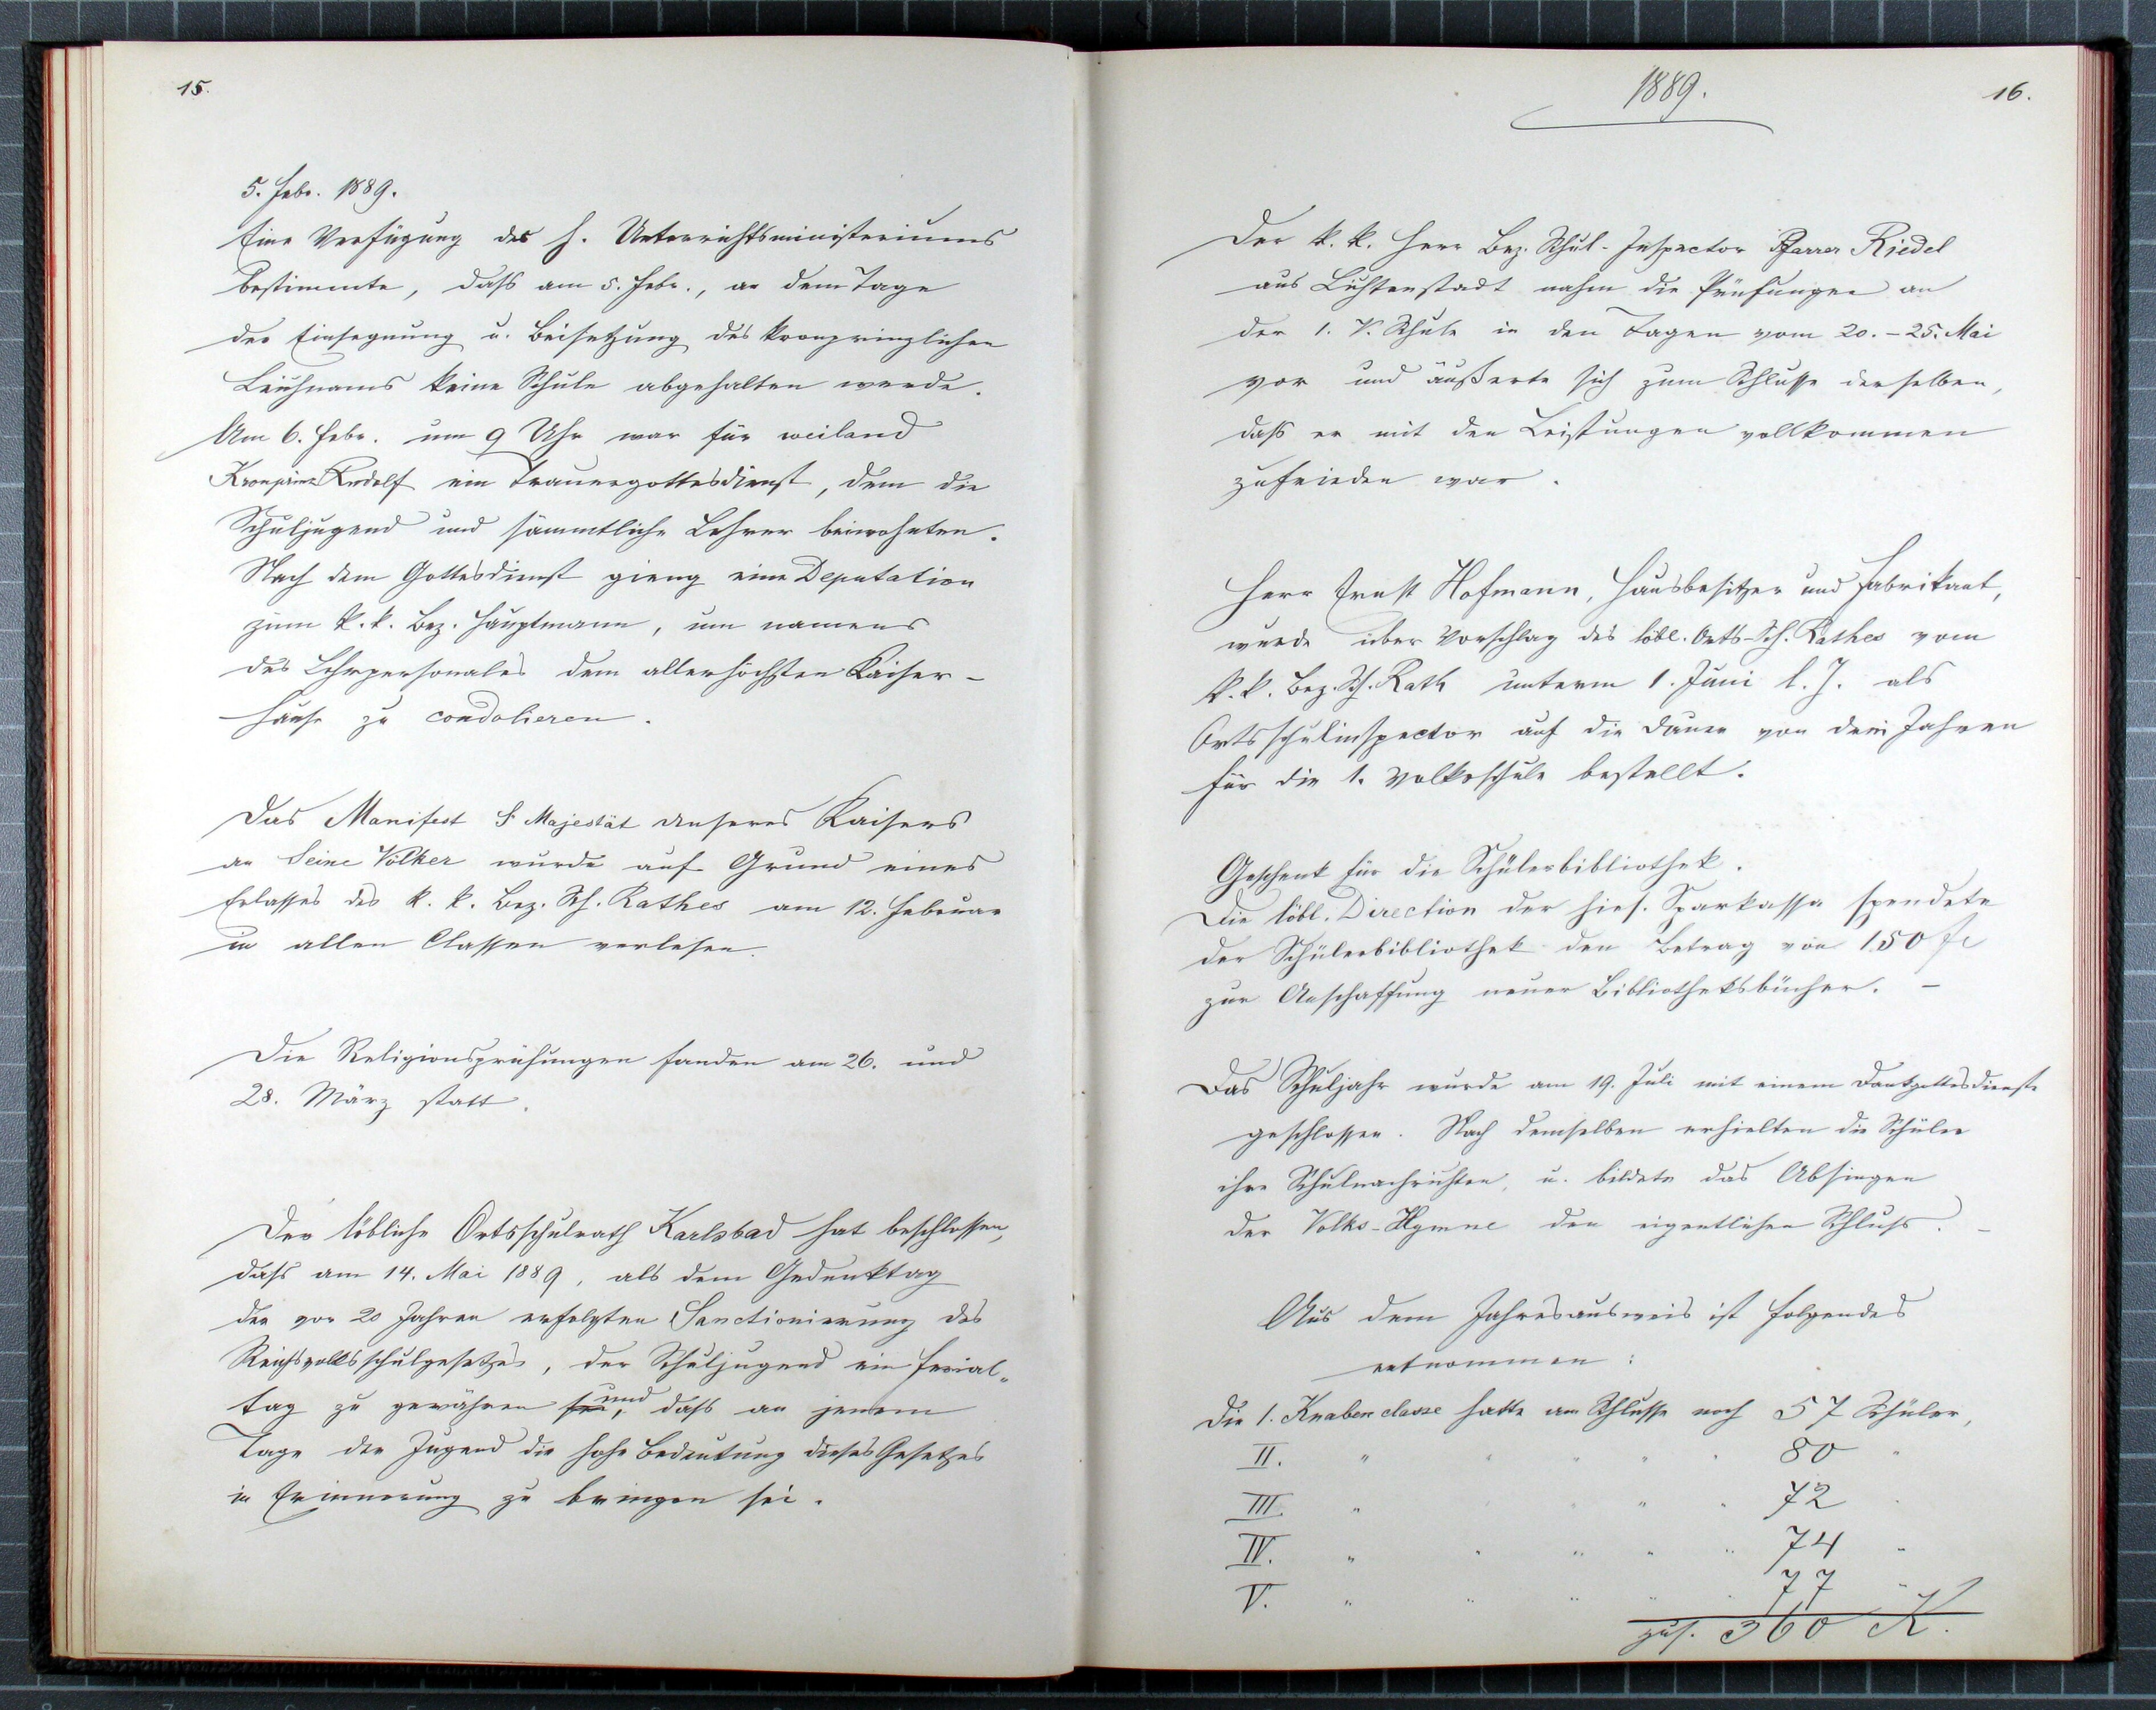 15.
5. Febr. 1889.
Eine Verfügung des h. Unterrichtsministeriums
bestimmte, daſs am 5. Febr., an dem Tage
der Einsegnung u. Beisetzung des kronprinzlichen
Leichnams keine Schule abgehalten werde.
Am 6. Febr. um 9 Uhr war für weiland
Kronprinz Rudolf ein Trauergottesdienst, dem die
Schuljugend und sämmtliche Lehrer beiwohnten.
Nach dem Gottesdienst gieng eine Deputation
zum k. k. Bez. Hauptmann, um namens
des Lehrpersonales dem allerhöchsten Kaiser-
hause zu condolieren.
Das Manifest Sr Majestät unseres Kaisers
an Seine Völker wurde auf Grund eines
Erlasses des k. k. Bez. Sch. Rathes am 12. Februar
in allen Classen verlesen.
Die Religionsprüfungen fanden am 26. und
28. März statt.
Der löbliche Ortsschulrath Karlsbad hat beschlossen,
daſs am 14. Mai 1889, als dem Gedenktag
der vor 20 Jahren erfolgten Sanctionierung des
Reichsvolksschulgesetzes, der Schuljugend ein Ferial-
tag zu gewähren sei, und daſs an jenem
Tage der Jugend die hohe Bedeutung dieses Gesetzes
in Erinnerung zu bringen sei.
1889.
16.
Der k. k. Herr Bez. Schul-Inspector Pfarrer Riedel
aus Lichtenstadt nahm die Prüfungen an
der 1. V. Schule in den Tagen vom 20. – 25. Mai
vor und äußerte sich zum Schlusse derselben,
daſs er mit den Leistungen vollkommen
zufrieden war.
Herr Ernst Hofmann, Hausbesitzer und Fabrikant,
wurde über Vorschlag des löbl. Orts-Sch. Rathes vom
k. k. Bez. Sch. Rath unterm 1. Juni l. J. als
Ortsschulinspector auf die Dauer von drei Jahren
für die 1. Volksschule bestellt.
Geschenk für die Schülerbibliothek.
Die löbl. Direction der hies. Sparkassa spendete
der Schülerbibliothek den Betrag von 150 fl
zur Anschaffung neuer Bibliotheksbücher. –
Das Schuljahr wurde am 19. Juli mit einem Dankgottesdienste
geschlossen. Nach demselben erhielten die Schüler
ihre Schulnachrichten, u. bildete das Absingen
der Volks-Hymne den eigentlichen Schluſs. –
Aus dem Jahresausweis ist folgendes
entnommen:
Die 1. Knabenclasse hatte am Schlusse noch 57 Schüler,
II. " " " " " 80 "
III. " " " " " 72 "
IV. " " " " " 74 "
V. " " " " " 77 "
zus. 360 K.